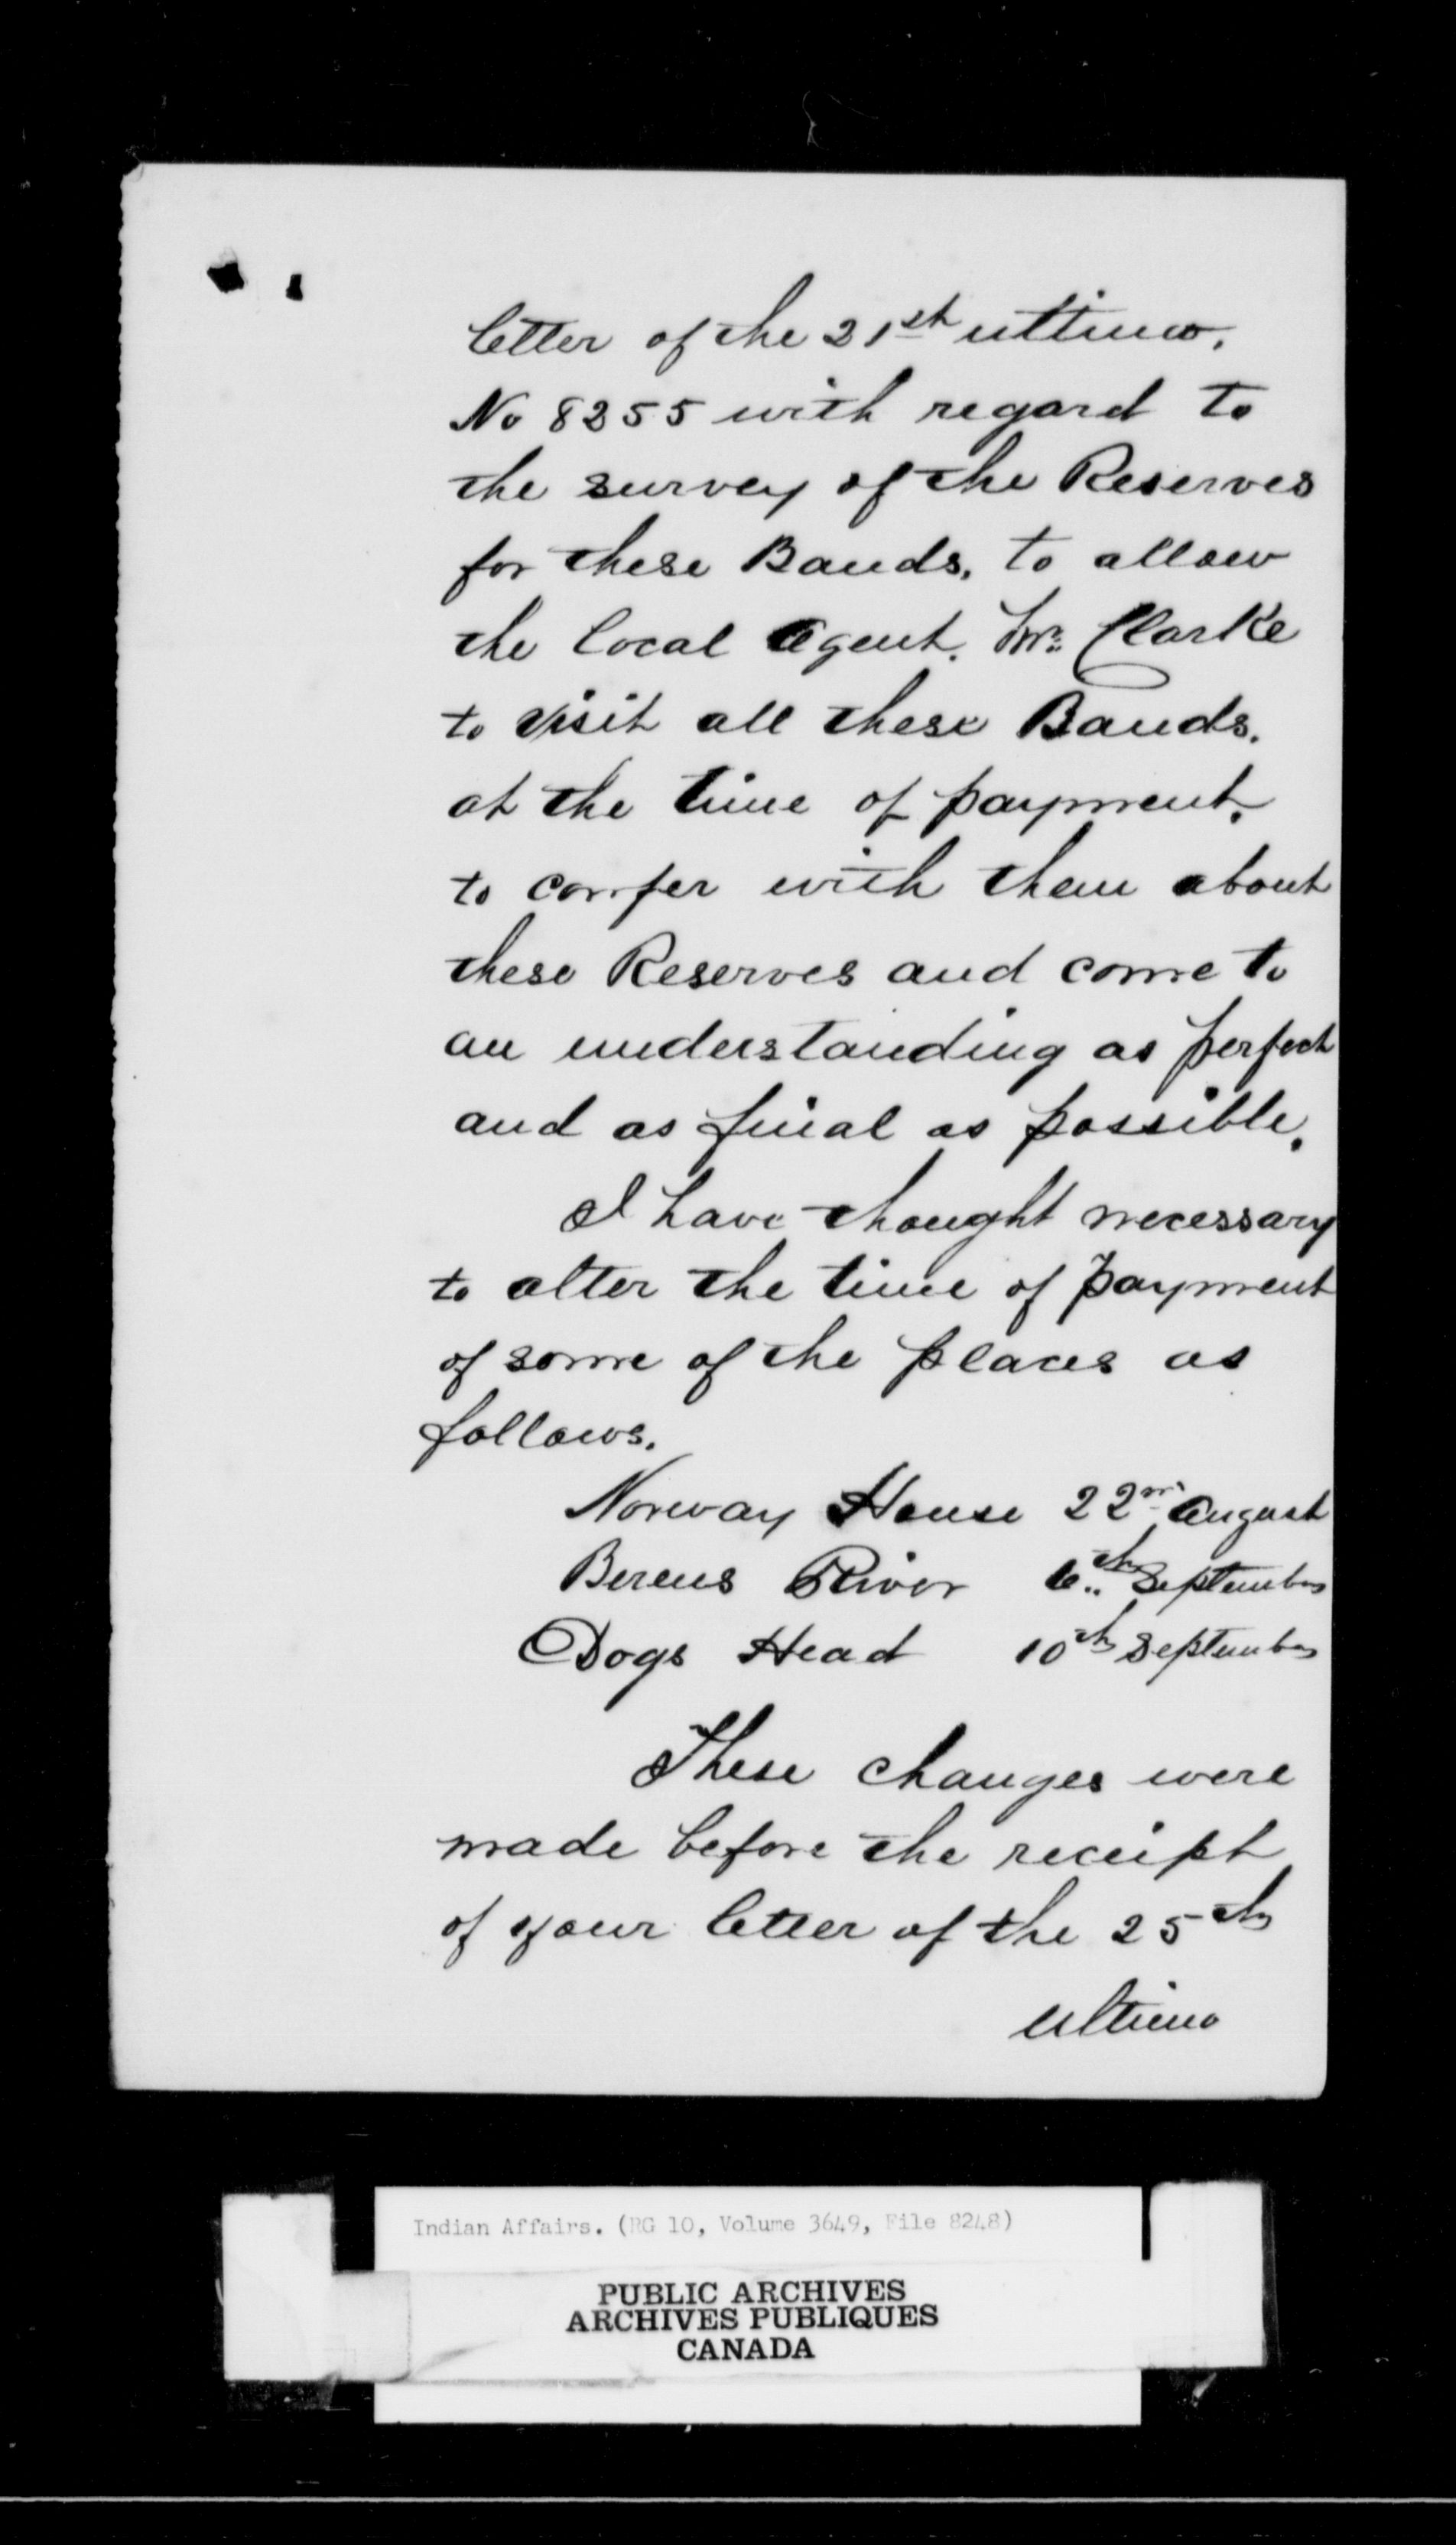 letter of the 21st ultimo.
No 8255 with regard to
the survey of the Reserves
for these Bands, to allow
the local Agent. Mr. Clarke
to visit all these Bands.
at the time of payment,
to confer with them about
these Reserves and come to
an understanding as perfect
and as final as possible.
I have thought necessary
to alter the time of payment
of some of the places as
follows.
Norway House 22nd August
Berens River 6th September
Dogs Head 10th September
These changes were
made before the receipt
of your letter of the 25th
ultimo
Indian Affairs. (RG 10, Volume 3649, File 8248)
PUBLIC ARCHIVES
ARCHIVES PUBLIQUES
CANADA